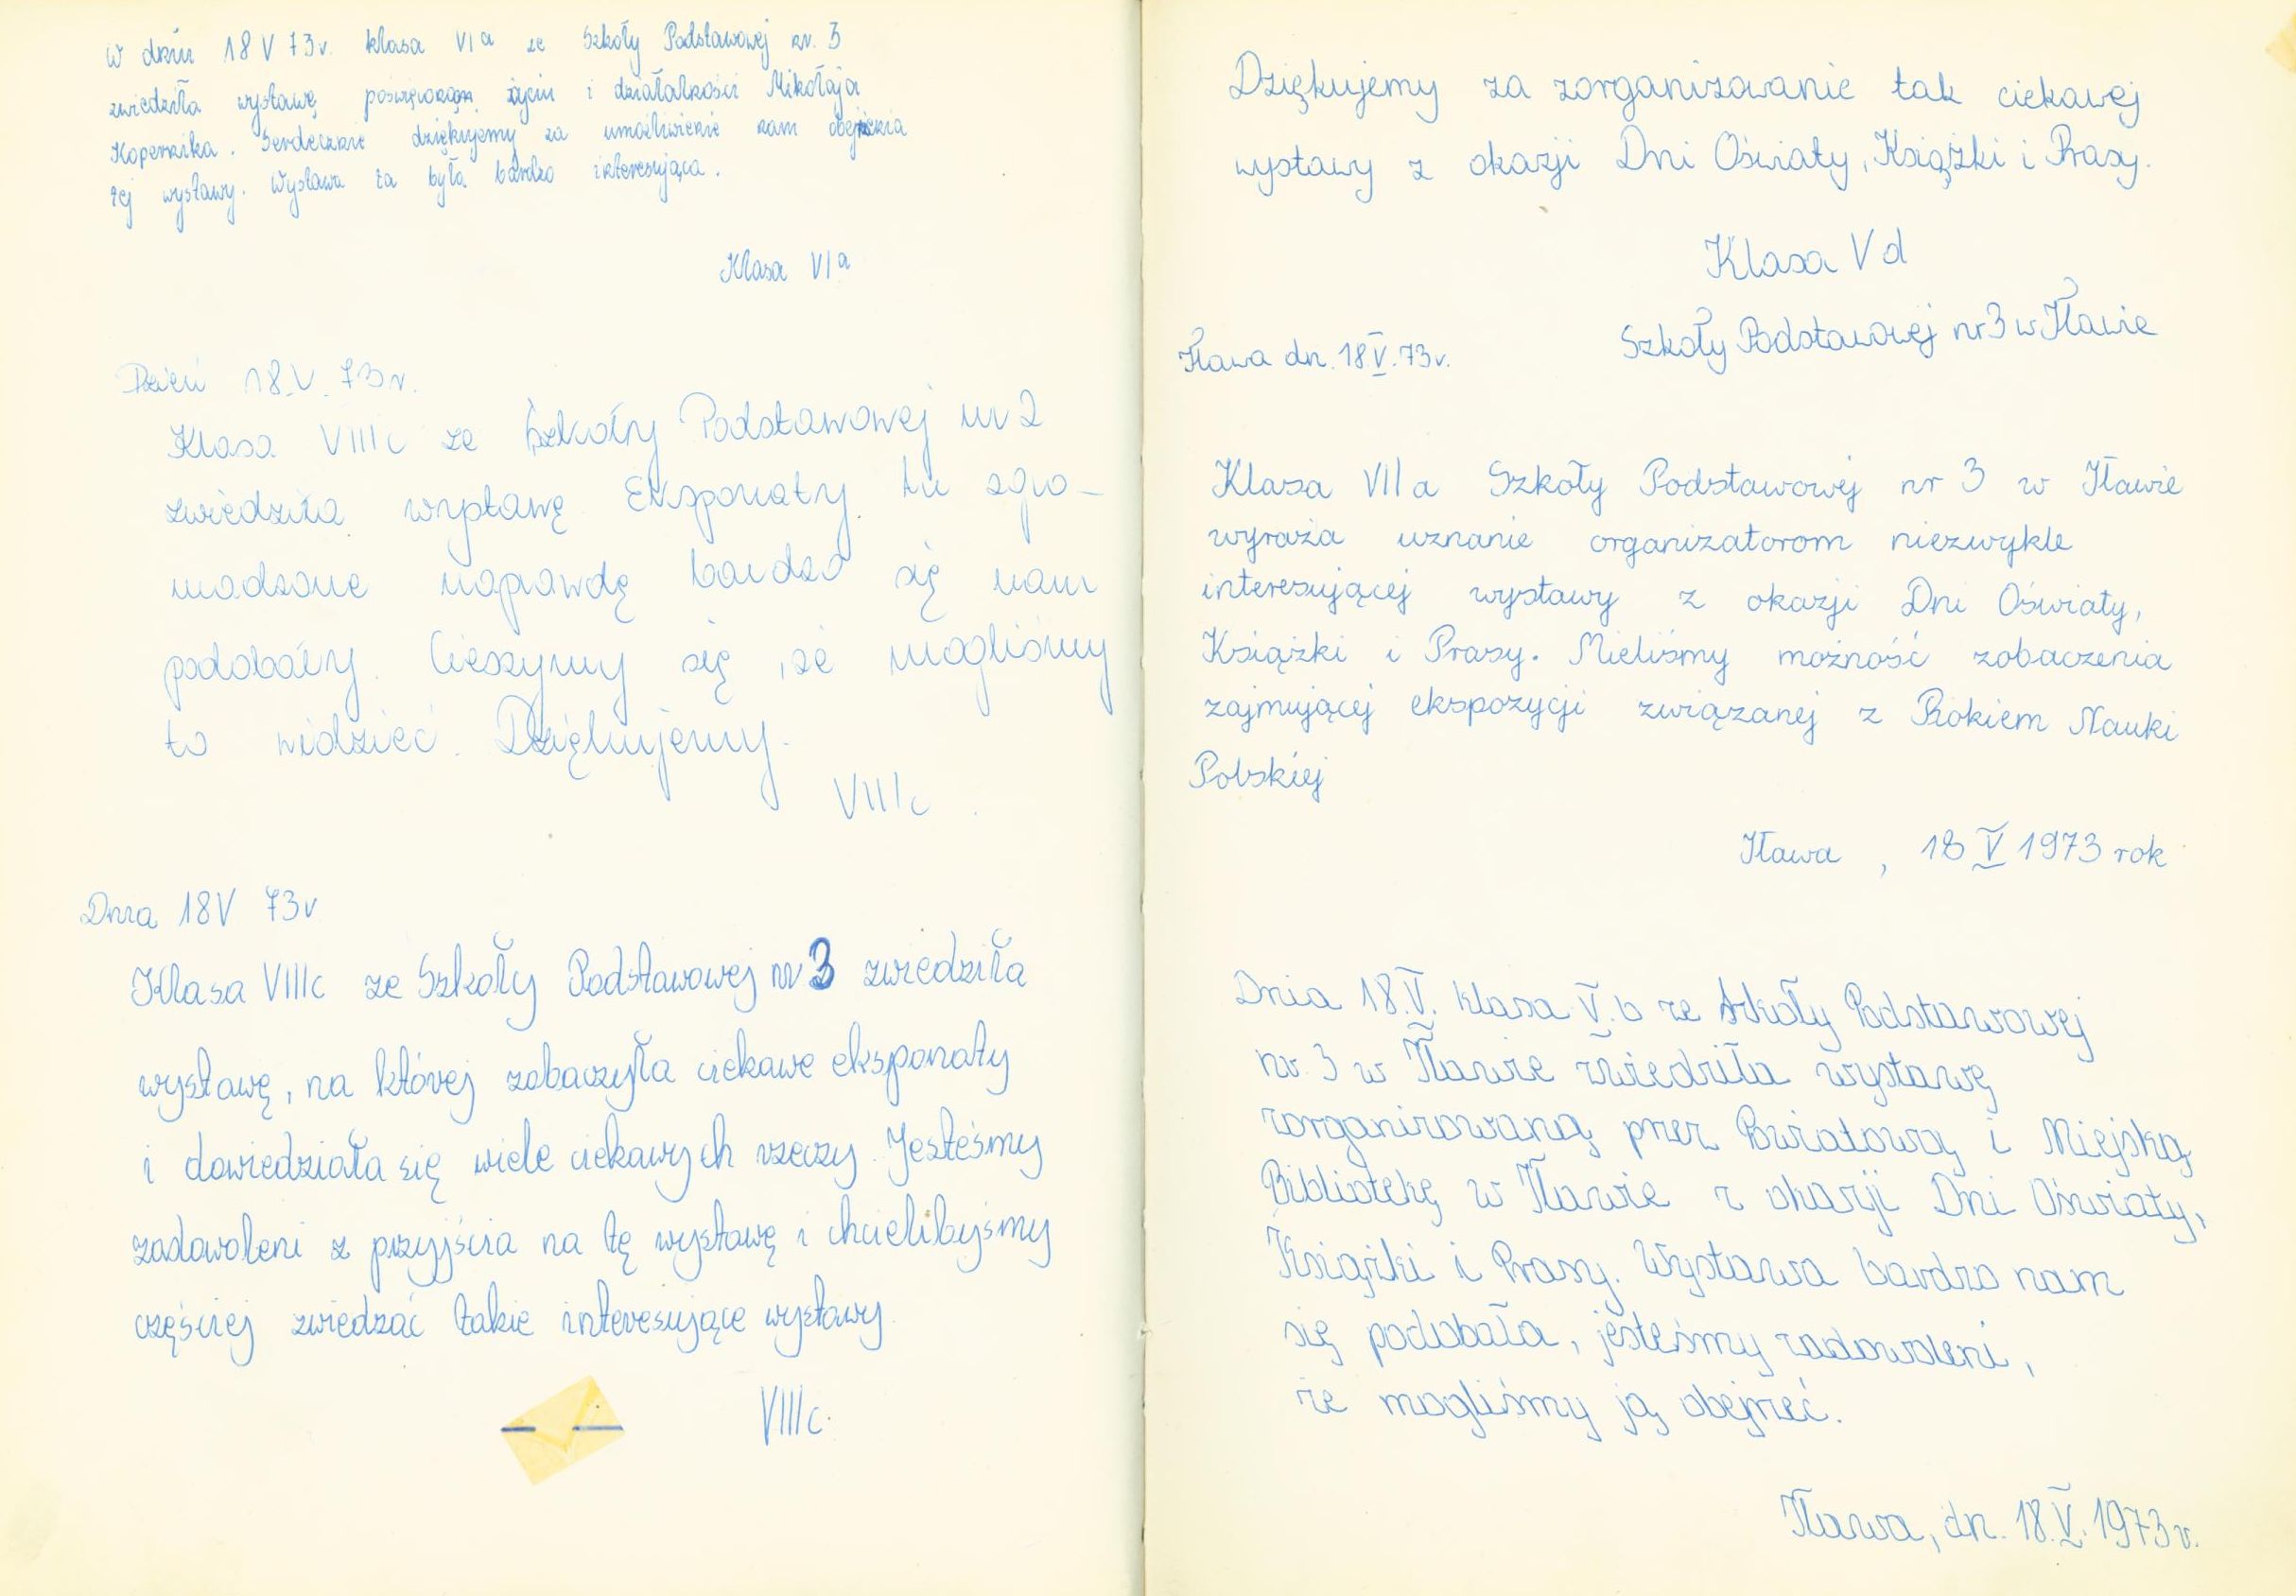 W dniu 18 V 73r. klasa VIa ze Szkoły Podstawowej nr. 3
zwiedziła wystawę poświęconą życiu i działalności Mikołaja
Kopernika. Serdecznie dziękujemy za umożliwienie nam obejrzenia
tej wystawy. Wystawa ta była bardzo interesująca.
Klasa VIa
Dzień 18.V.73r.
Klasa VIIIc ze Szkoły Podstawowej nr 2
zwiedziła wystawę. Eksponaty tu zgro-
madzone naprawdę bardzo się nam
podobały. Cieszymy się, że mogliśmy
to widzieć. Dziękujemy.
VIIIc
Dnia 18V 73r
Klasa VIIIc ze Szkoły Podstawowej nr 3 zwiedziła
wystawę, na której zobaczyła ciekawe eksponaty
i dowiedziała się wiele ciekawych rzeczy. Jesteśmy
zadowoleni z przyjścia na tę wystawę i chcielibyśmy
częściej zwiedzać takie interesujące wystawy.
VIIIc.
Dziękujemy za zorganizowanie tak ciekawej
wystawy z okazji Dni Oświaty, Książki i Prasy.
Klasa Vd
Szkoły Podstawowej nr 3 w Iławie
Iława dn. 18.V.73r.
Klasa VIIa Szkoły Podstawowej nr 3 w Iławie
wyraża uznanie organizatorom niezwykle
interesującej wystawy z okazji Dni Oświaty,
Książki i Prasy. Mieliśmy możność zobaczenia
zajmującej ekspozycji związanej z Rokiem Nauki
Polskiej
Iława, 18 V 1973 rok
Dnia 18.V. klasa V.b ze Szkoły Podstawowej
nr. 3 w Iławie zwiedziła wystawę
zorganizowaną przez Powiatową i Miejską
Bibliotekę w Iławie z okazji Dni Oświaty,
Książki i Prasy. Wystawa bardzo nam
się podobała, jesteśmy zadowoleni,
że mogliśmy ją obejrzeć.
Iława, dn. 18.V.1973r.